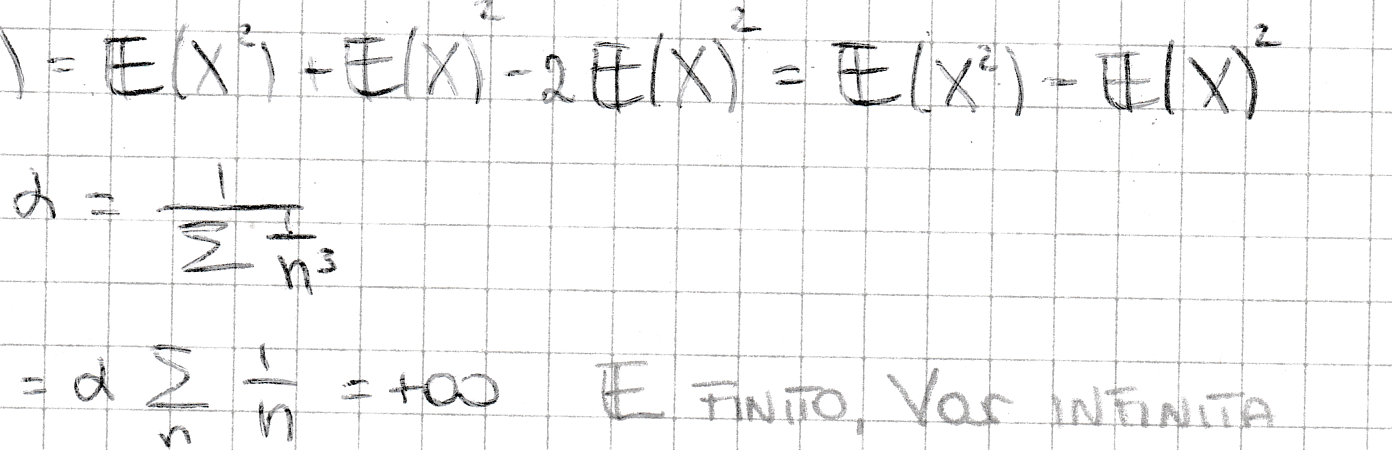 ) = 𝔼(X²) + 𝔼(X)² - 2𝔼(X)² = 𝔼(X²) - 𝔼(X)²
α = 1 / Σ 1/n³
= α Σ_n 1/n = +∞ 𝔼 FINITO, Var INFINITA